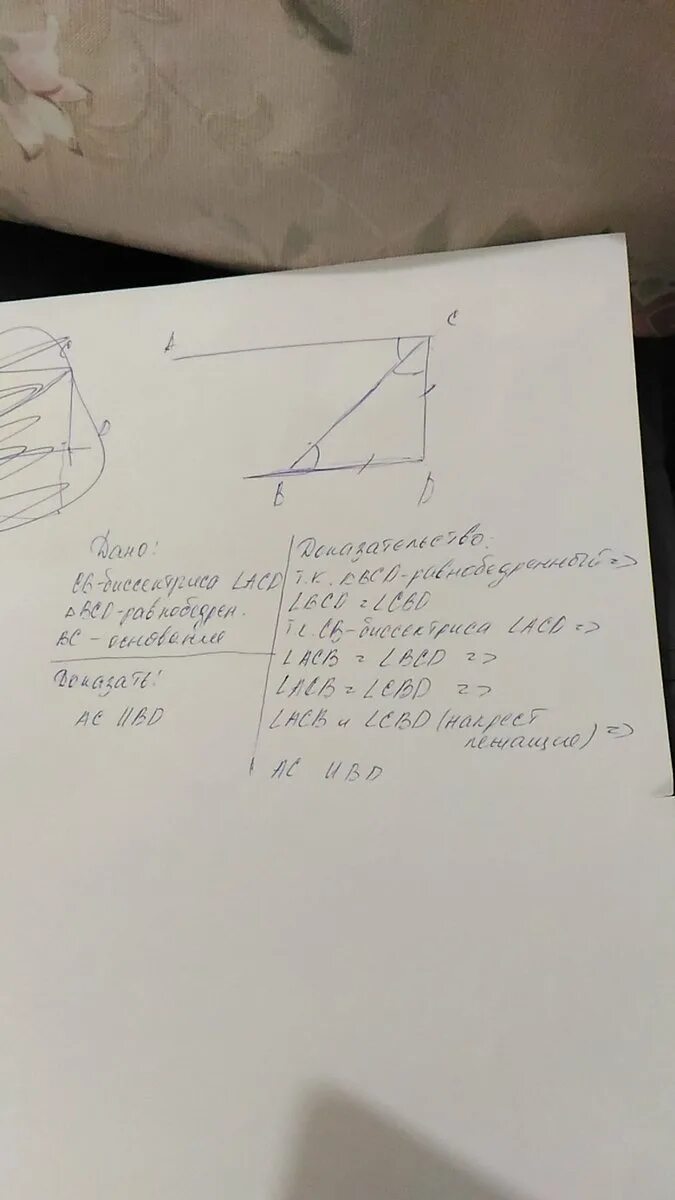 C
D
A
C
B
D
Дано:
CB-биссектриса ∠ACD
△BCD-равнобедрен.
BC - основание
Доказать:
AC || BD
Доказательство:
Т.к. △BCD-равнобедренный =>
∠BCD = ∠CBD
Т.к. CB-биссектриса ∠ACD =>
∠ACB = ∠BCD =>
∠ACB = ∠CBD =>
∠ACB и ∠CBD (накрест
лежащие) =>
AC || BD